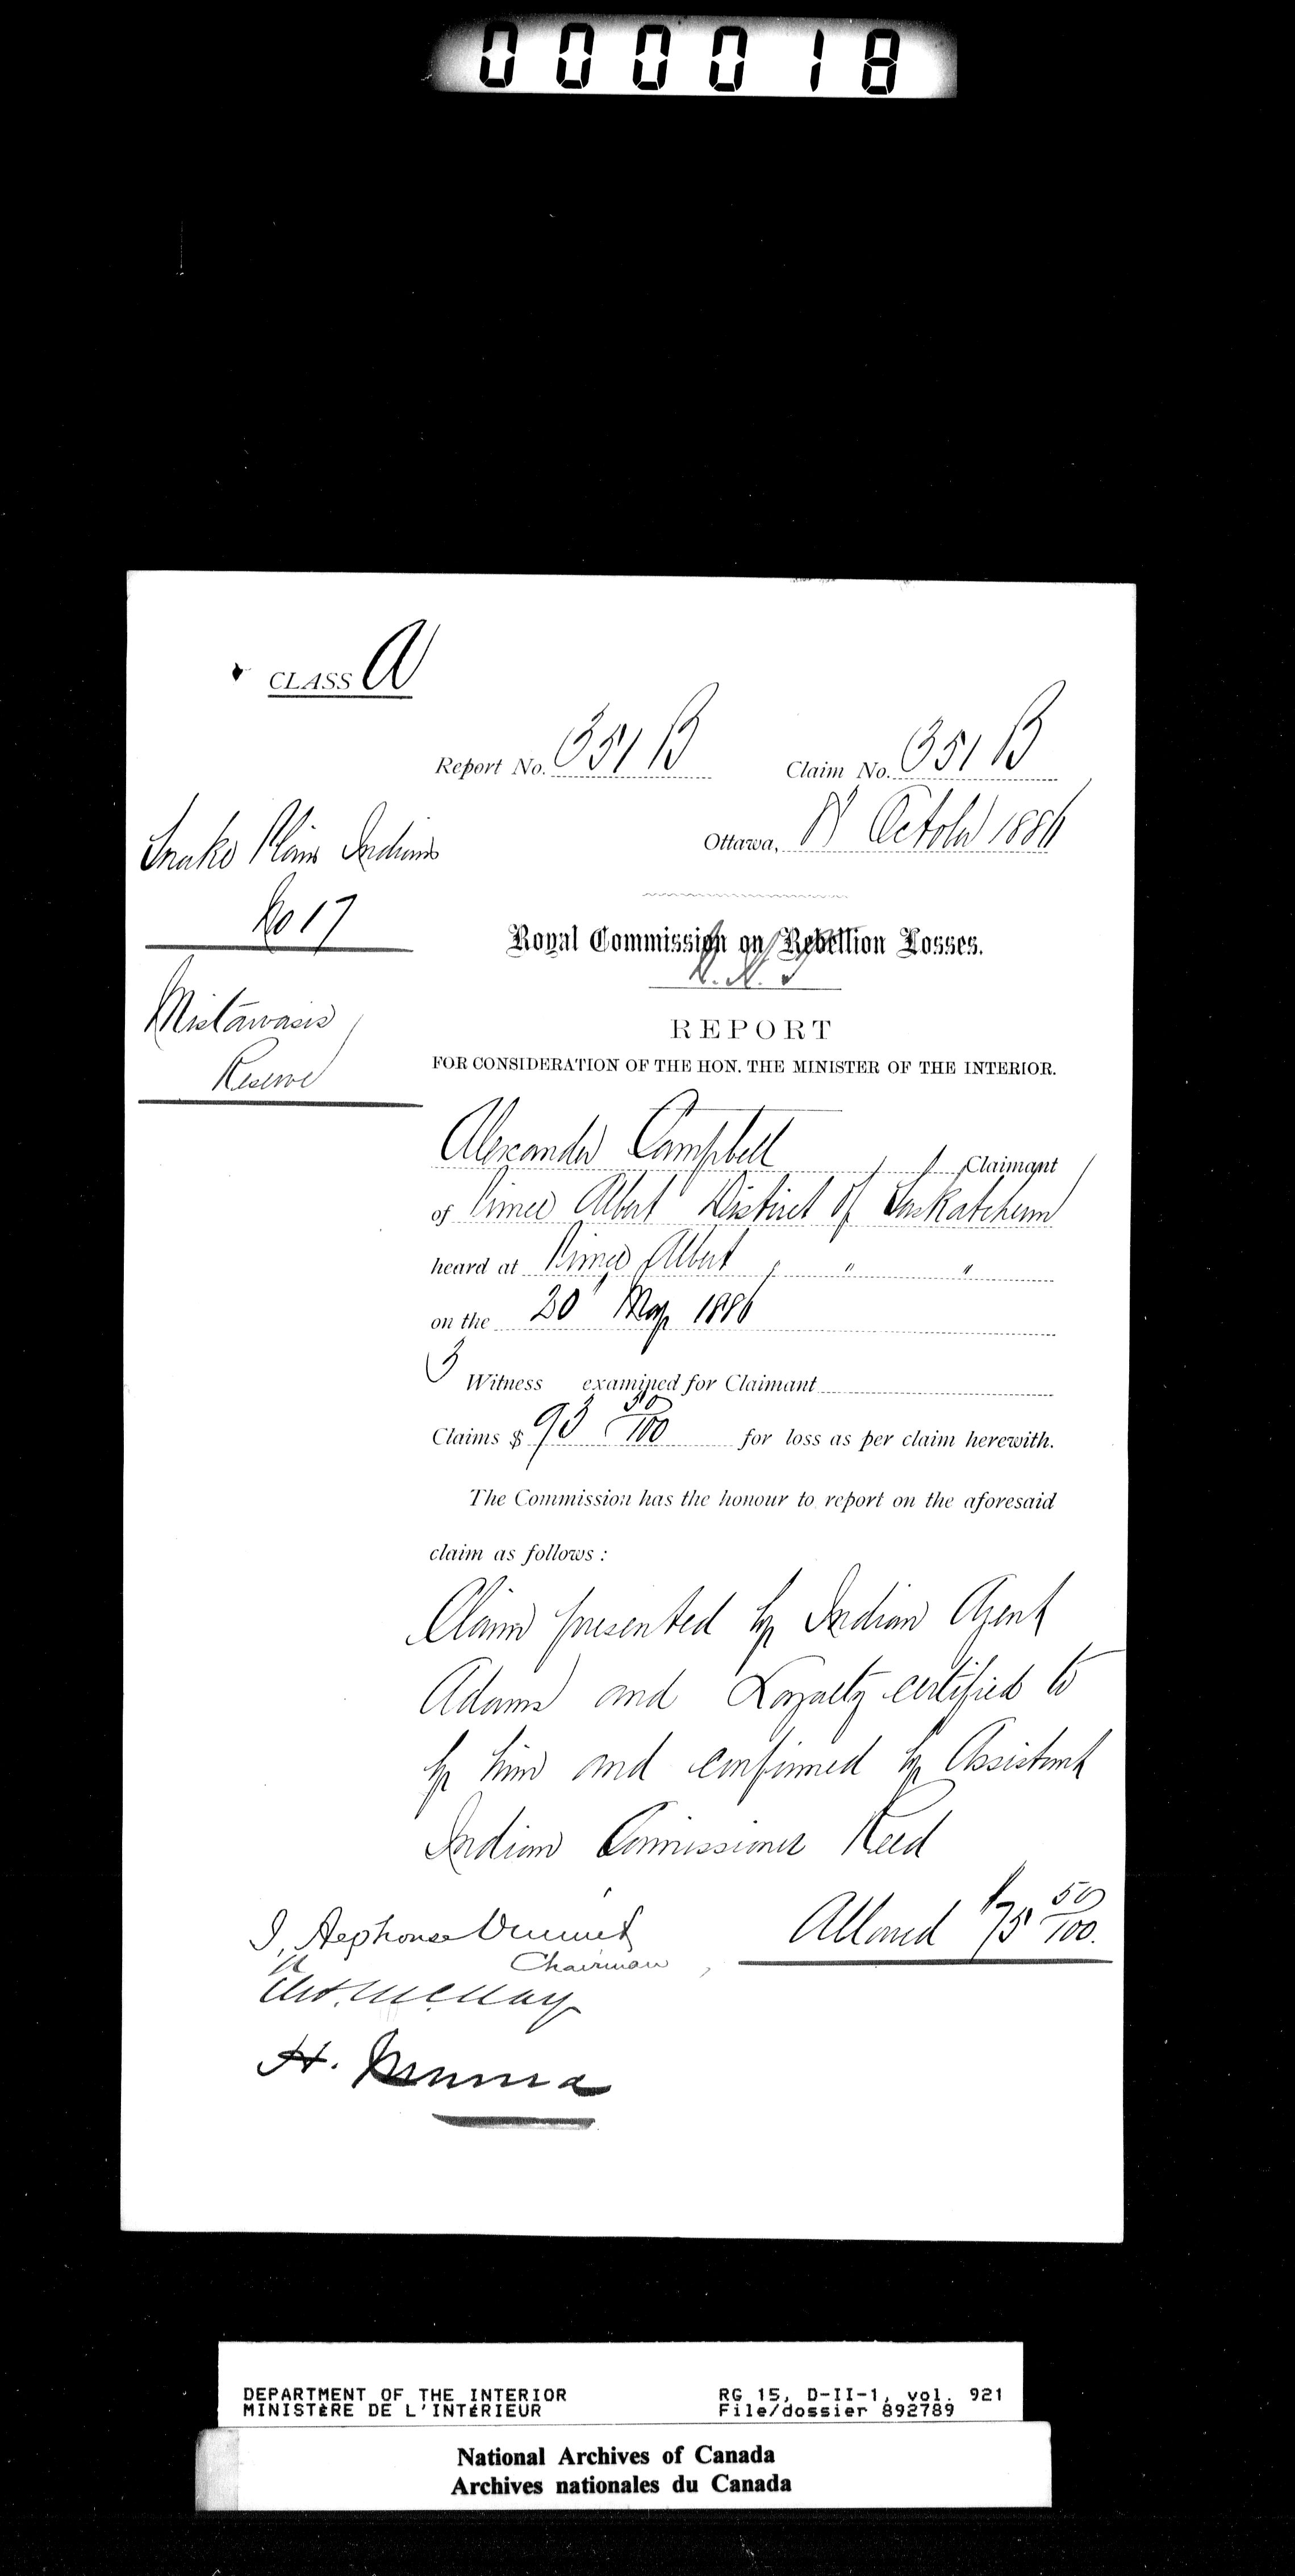 000018
CLASS A
Report No. 351 B Claim No. 351 B
Ottawa, October 1886
Snake Plain Indians
No 17
Royal Commission on Rebellion Losses.
Mistawasis
Reserve
REPORT
FOR CONSIDERATION OF THE HON. THE MINISTER OF THE INTERIOR.
Alexander Campbell Claimant
of Prince Albert District of Saskatchewan
heard at Prince Albert " " "
on the 20 May 1886
3 Witness examined for Claimant
Claims $ 93 50/100 for loss as per claim herewith.
The Commission has the honour to report on the aforesaid
claim as follows:
Claim presented by Indian Agent
Adams and Loyalty certified to
by him and confirmed by Assistant
Indian Commissioner Reed
Allowed $75 50/100.
J. Alphonse Ouimet
Chairman
McKay
H.
DEPARTMENT OF THE INTERIOR RG 15, D-II-1, vol. 921
MINISTÈRE DE L'INTÉRIEUR File/dossier 892789
National Archives of Canada
Archives nationales du Canada